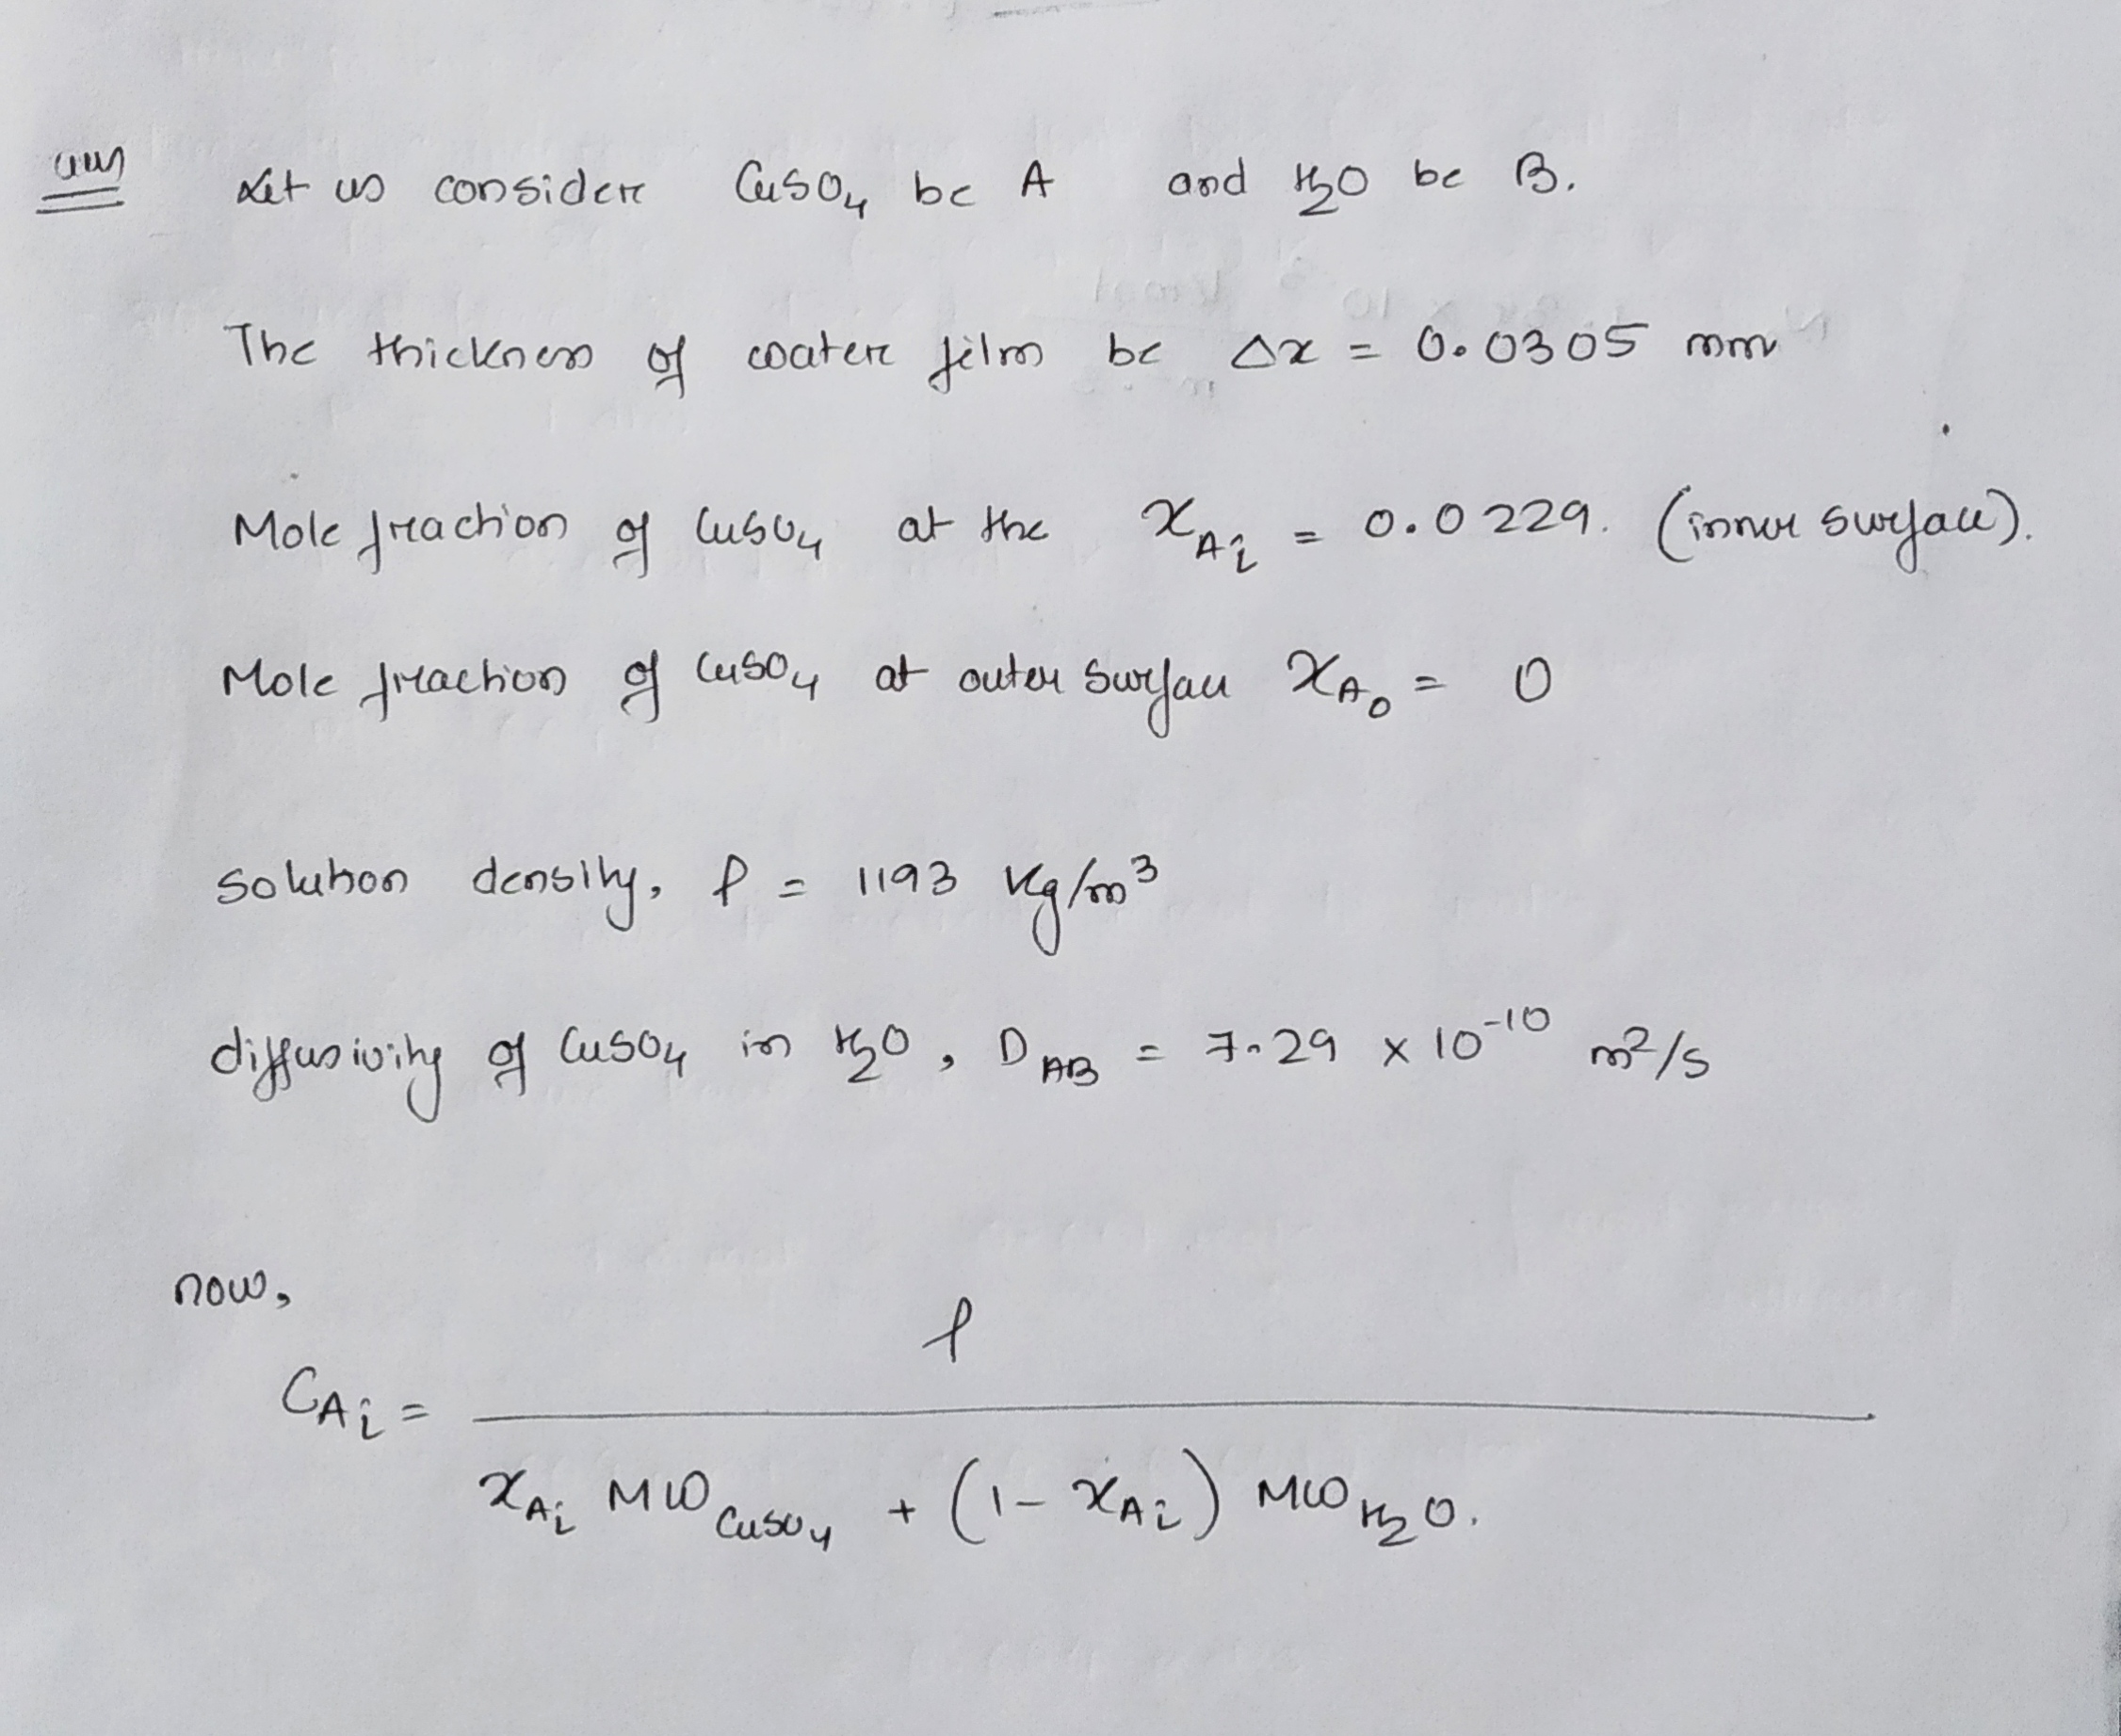 ans
Let us consider CuSO₄ be A and H₂O be B.
The thickness of water film be Δx = 0.0305 mm
Mole fraction of CuSO₄ at the x_Ai = 0.0229. (inner surface).
Mole fraction of CuSO₄ at outer surface x_A₀ = 0
solution density, ρ = 1193 kg/m³
diffusivity of CuSO₄ in H₂O, D_AB = 7.29 × 10⁻¹⁰ m²/s
now,
ρ
C_Ai = ―――――
x_Ai MW_CuSO₄ + (1 - x_Ai) MW_H₂O.